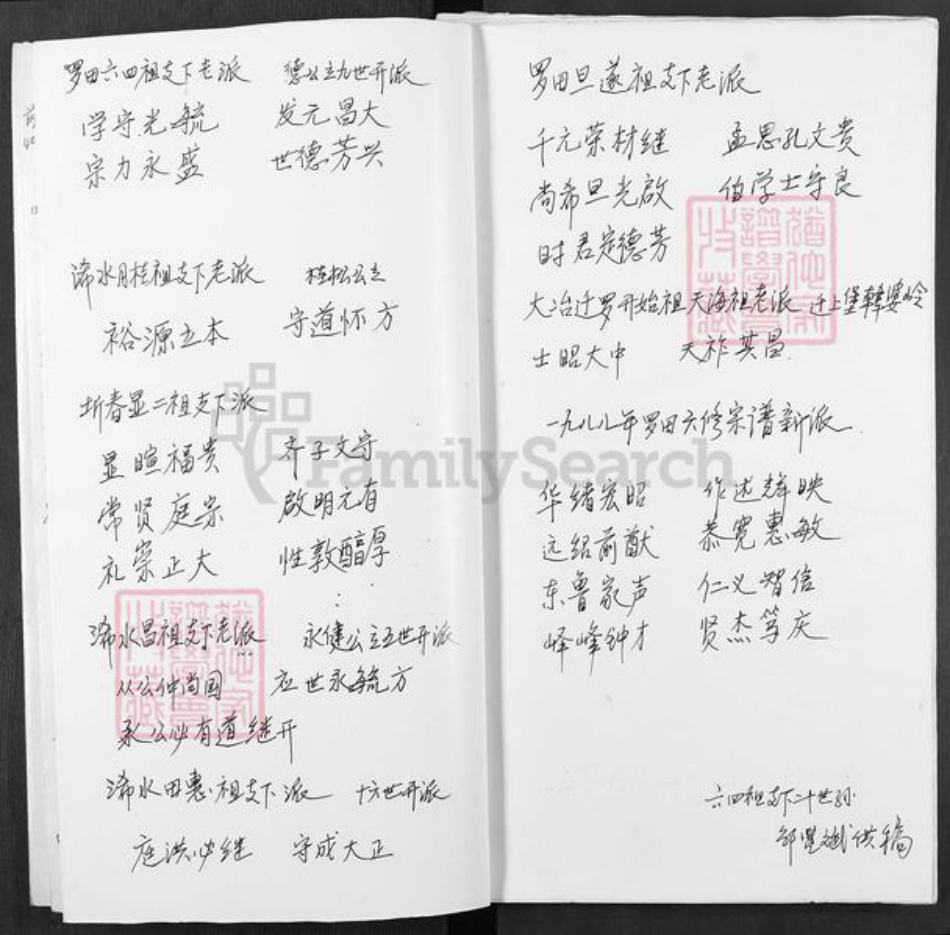 罗田六四祖支下老派 德公立九世开派
学守光毓 发元昌大
宗力永盛 世德芳兴
浠水月桂祖支下老派 桂松公立
裕源立本 守道怀方
圻春显二祖支下派
显暄福贵 齐子文守
常贤庭宗 啟明元有
礼崇正大 性敦醇厚
浠水昌祖支下老派 永健公立五世开派
从公仲尚国 应世永毓方
承公必有道继开
浠水田惠祖支下派 十六世开派
庭洪必继 守成大正
罗田旦遂祖支下老派
千元荣材继 孟思孔文贵
尚希旦光啟 伯学士守良
时君定德芳
大冶迁罗开始祖天海祖老派 迁上堡
士昭大中 天祚其昌
一九八八年罗田六修宗谱新派
华绪宏昭 作述辉映
远绍前猷 恭宽惠敏
东鲁家声 仁义智信
峄峰钟才 贤杰笃庆
六四祖支下二十世孙
邹 斌供稿
FamilySearch